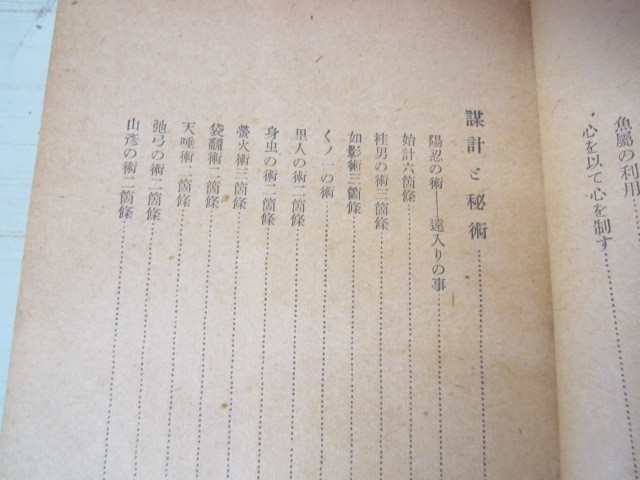 魚屬の利用
心を以て心を制す
謀計と秘術
陽忍の術――遠入りの事
始計六箇條
桂男の術三箇條
如影術三箇條
くノ一の術
里人の術二箇條
身虫の術二箇條
螢火術三箇條
袋飜術二箇條
天唾術二箇條
弛弓の術二箇條
山彦の術二箇條